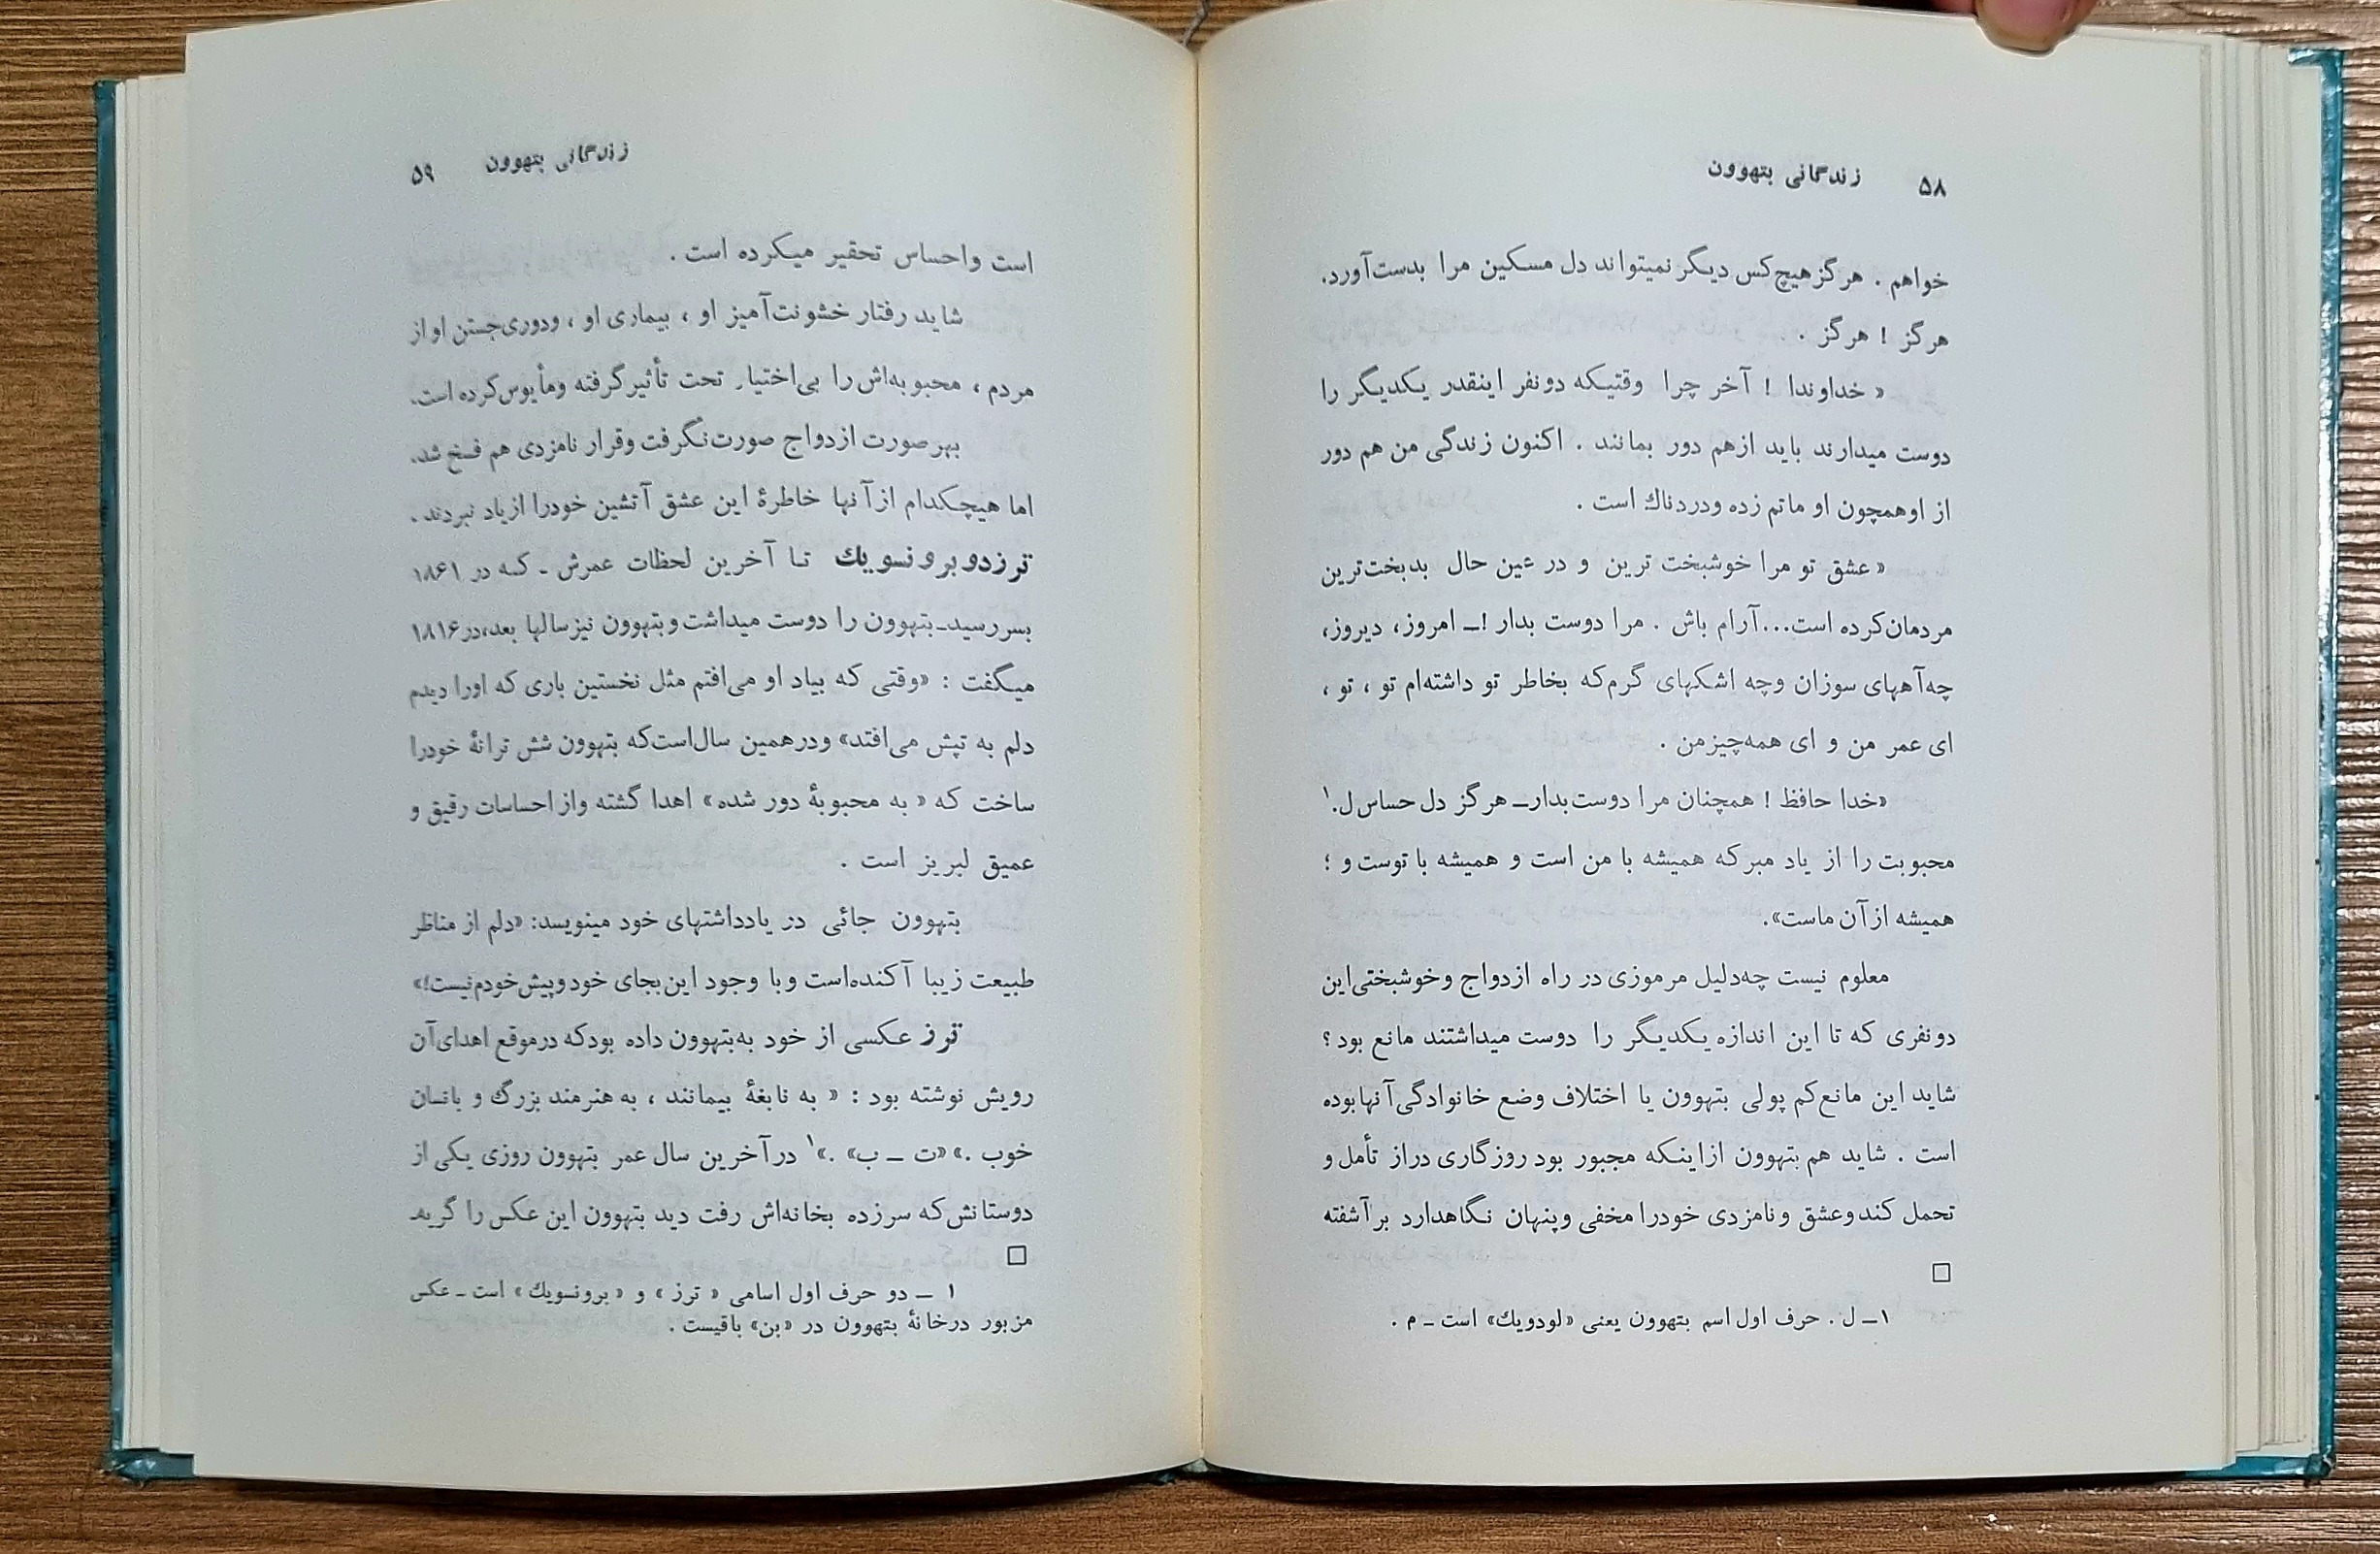 ۵۸ زندگانی بتهوون
خواهم . هرگز هیچ‌کس دیگر نمیتواند دل مسکین مرا بدست‌آورد.
هرگز ! هرگز .
« خداوندا ! آخر چرا وقتیکه دونفر اینقدر یکدیگر را
دوست میدارند باید ازهم دور بمانند . اکنون زندگی من هم دور
از اوهمچون او ماتم زده ودردناك است .
« عشق تو مرا خوشبخت ترین و در عین حال بدبخت‌ترین
مردمان‌کرده است...آرام باش . مرا دوست بدار !ـ امروز، دیروز،
چه‌آههای سوزان وچه اشکهای گرم‌که بخاطر تو داشته‌ام تو ، تو ،
ای عمر من و ای همه‌چیزمن .
«خدا حافظ ! همچنان مرا دوست‌بدارـ هرگز دل حساس ل.۱
محبوبت را از یاد مبرکه همیشه با من است و همیشه با توست و ؛
همیشه ازآن ماست».
معلوم نیست چه‌دلیل مرموزی در راه ازدواج وخوشبختی‌این
دونفری که تا این اندازه یکدیگر را دوست میداشتند مانع بود ؟
شاید این مانع‌کم پولی بتهوون یا اختلاف وضع خانوادگی‌آنهابوده
است . شاید هم بتهوون ازاینکه مجبور بود روزگاری دراز تأمل و
تحمل کندوعشق ونامزدی خودرا مخفی وپنهان نگاهدارد برآشفته
□
۱ـ ل . حرف اول اسم بتهوون یعنی «لودویك» است ـ م .
زندگانی بتهوون ۵۹
است واحساس تحقیر میکرده است .
شاید رفتار خشونت‌آمیز او ، بیماری او ، ودوری‌جستن او از
مردم ، محبوبه‌اش را بی‌اختیار تحت تأثیرگرفته ومأیوس‌کرده است.
بهرصورت ازدواج صورت‌نگرفت وقرار نامزدی هم فسخ شد.
اما هیچکدام ازآنها خاطرهٔ این عشق آتشین خودرا ازیاد نبردند .
ترزدوبرونسویك تا آخرین لحظات عمرش ـ که در ۱۸۶۱
بسررسیدـ بتهوون را دوست میداشت وبتهوون نیزسالها بعد،در۱۸۱۶
میگفت : «وقتی که بیاد او می‌افتم مثل نخستین باری که اورا دیدم
دلم به تپش می‌افتد» ودرهمین سال‌است‌که بتهوون شش ترانهٔ خودرا
ساخت که « به محبوبهٔ دور شده» اهدا گشته واز احساسات رقیق و
عمیق لبریز است .
بتهوون جائی در یادداشتهای خود مینویسد: «دلم از مناظر
طبیعت زیبا آکنده‌است وبا وجود این‌بجای خودوپیش‌خودم‌نیست!»
ترز عکسی از خود به‌بتهوون داده بودکه درموقع اهدای‌آن
رویش نوشته بود : « به نابغهٔ بیمانند ، به هنرمند بزرگ و بانسان
خوب .» «ت ـ ب» .»۱ درآخرین سال عمر بتهوون روزی یکی از
دوستانش‌که سرزده بخانه‌اش رفت دید بتهوون این عکس را گریه
□
۱ ـ دو حرف اول اسامی « ترز » و « برونسویك » است ـ عکس
مزبور درخانهٔ بتهوون در «بن» باقیست .